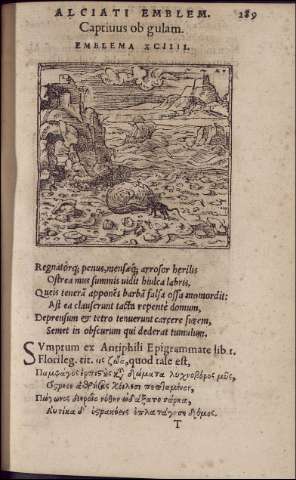 ALCIATI EMBLEM. 289
Captiuus ob gulam.
EMBLEMA XCIIII.
Regnatorq; penus, mensæq; arrosor herilis
Ostrea mus summis uidit hiulca labris.
Queis teneram apponẽs barbã falsa ossa momordit:
Ast ea clauserunt tacta repentè domum,
Deprensum & tetro tenuerunt carcere furem,
Semet in obscurum qui dederat tumulum.
SVmptum ex Antiphili Epigrammate lib. 1.
Florileg. tit. εἰς ζῶα, quod tale est,
Παμφάγος ἑρπηστὴς κατὰ δώματα λιχνοβόρος μῦς,
Ὄστρεον ἀθρήσας χείλεσι πεπταμένον,
Πώγωνος διεροῖο νόθην ὠδάξατο σάρκα,
Αὐτίκα δ' ὀστρακόεις ἐπλατάγησε δόμος.
T